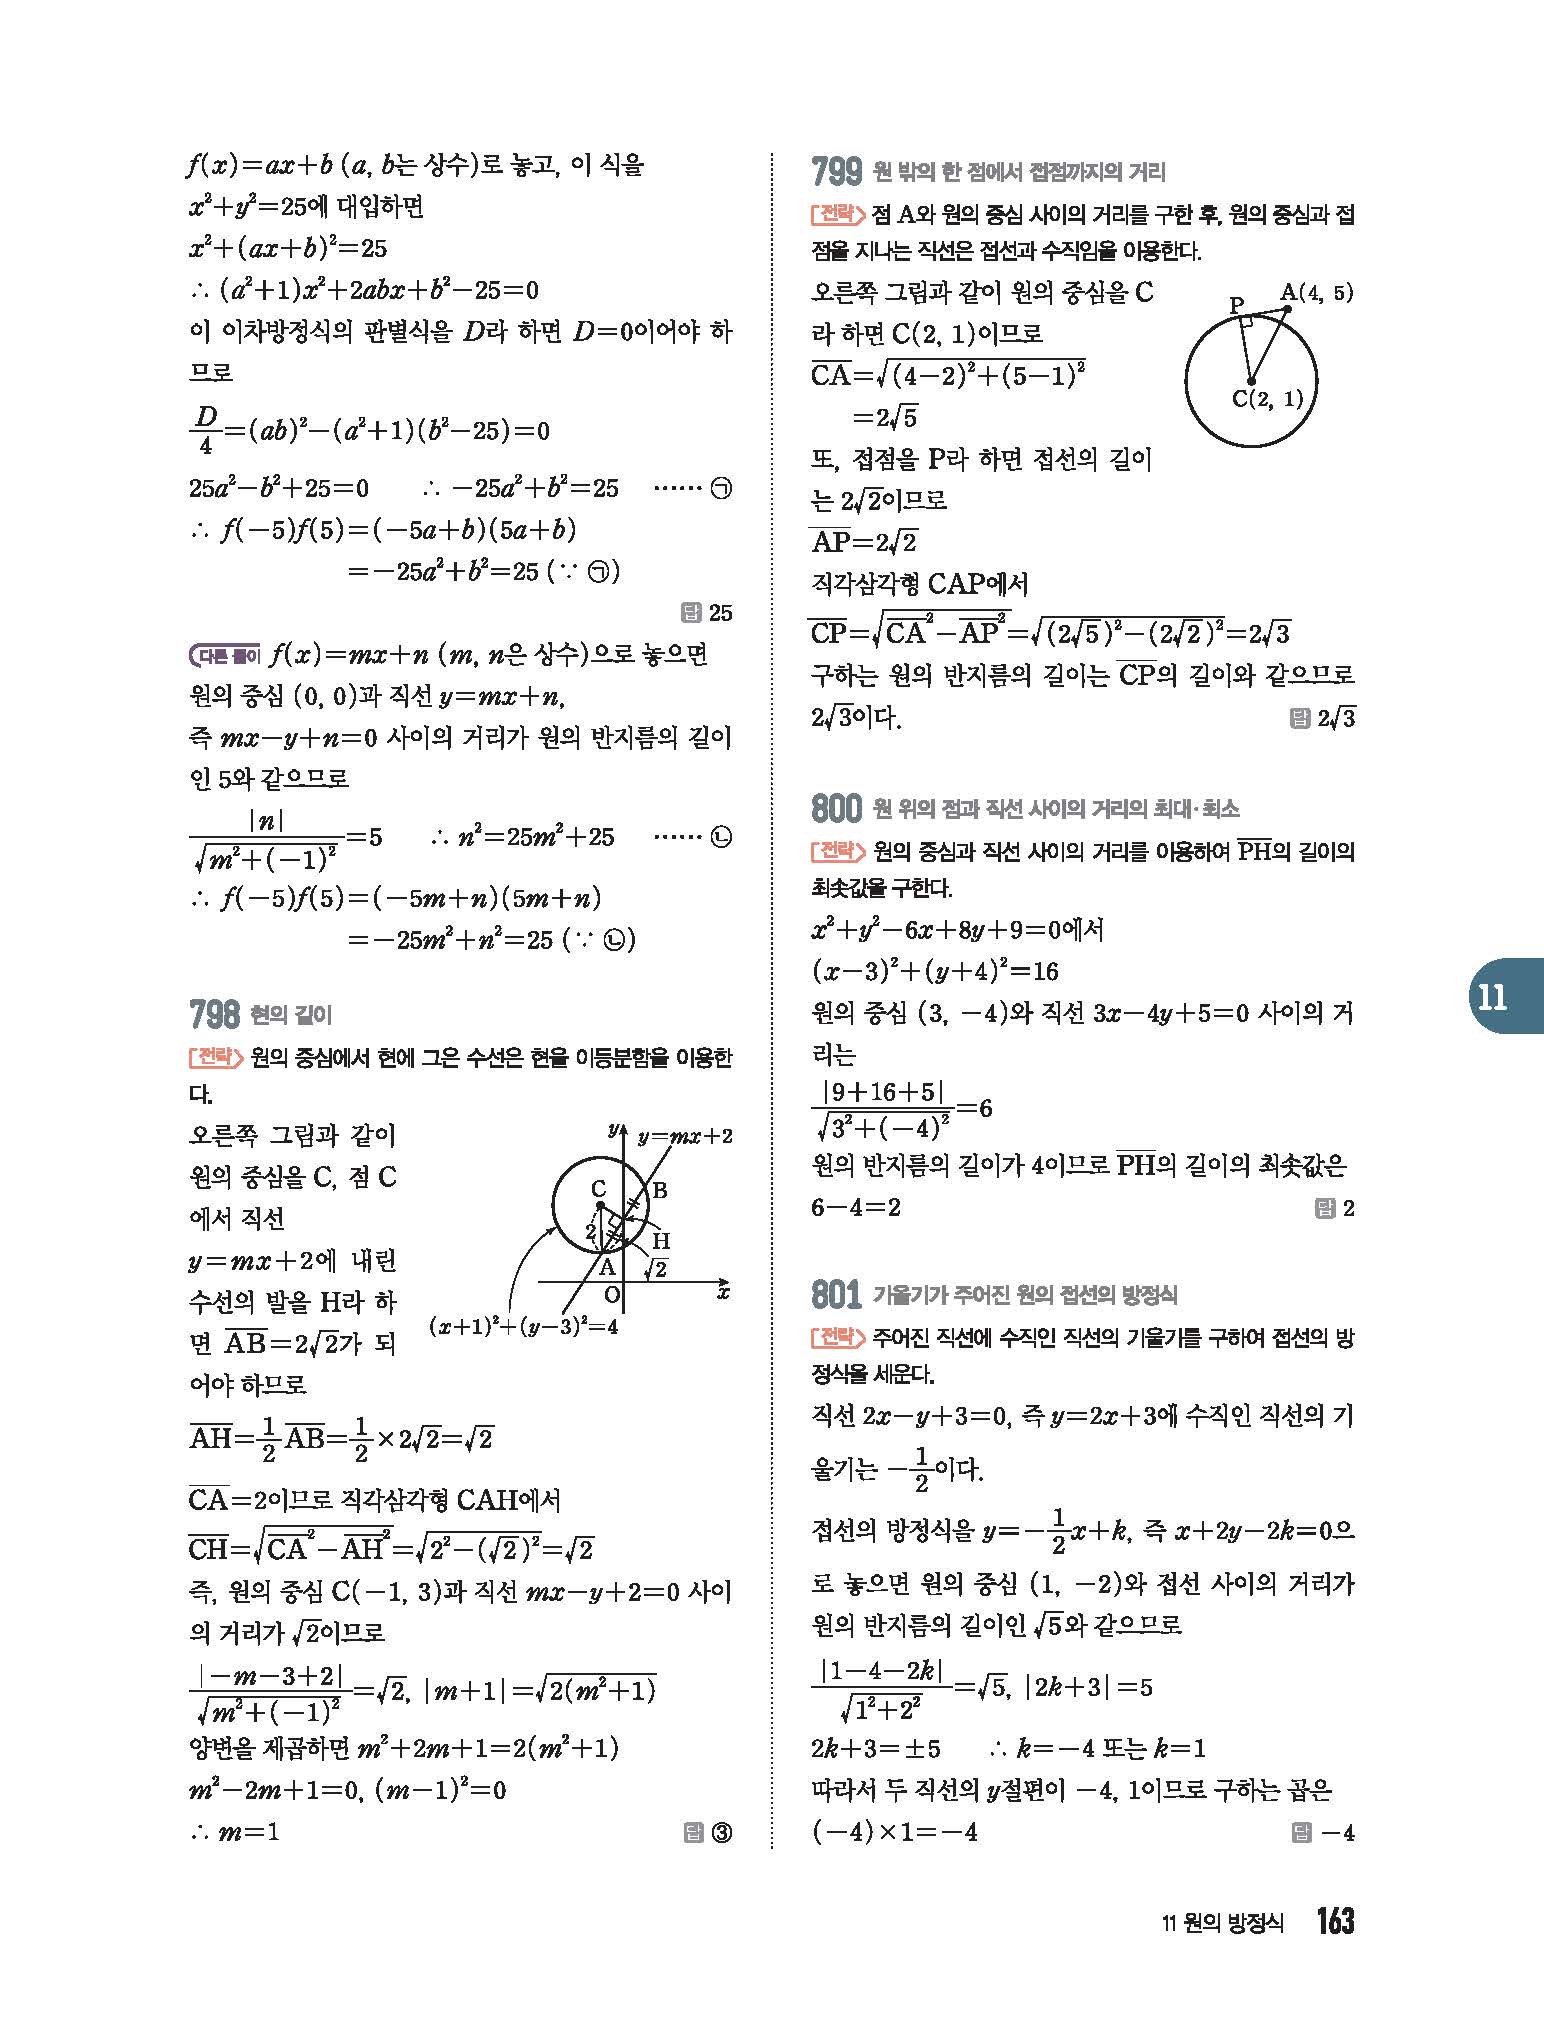 f(x)=ax+b (a, b는 상수)로 놓고, 이 식을
x²+y²=25에 대입하면
x²+(ax+b)²=25
∴ (a²+1)x²+2abx+b²-25=0
이 이차방정식의 판별식을 D라 하면 D=0이어야 하
므로
D/4=(ab)²-(a²+1)(b²-25)=0
25a²-b²+25=0 ∴ -25a²+b²=25 ······ ㉠
∴ f(-5)f(5)=(-5a+b)(5a+b)
=-25a²+b²=25 (∵ ㉠)
답 25
다른 풀이 f(x)=mx+n (m, n은 상수)으로 놓으면
원의 중심 (0, 0)과 직선 y=mx+n,
즉 mx-y+n=0 사이의 거리가 원의 반지름의 길이
인 5와 같으므로
|n|/√(m²+(-1)²)=5 ∴ n²=25m²+25 ······ ㉡
∴ f(-5)f(5)=(-5m+n)(5m+n)
=-25m²+n²=25 (∵ ㉡)
798 현의 길이
전략 원의 중심에서 현에 그은 수선은 현을 이등분함을 이용한
다.
오른쪽 그림과 같이
원의 중심을 C, 점 C
에서 직선
y=mx+2에 내린
수선의 발을 H라 하
면 AB=2√2가 되
어야 하므로
y y=mx+2
C B
2
H
A √2
O x
(x+1)²+(y-3)²=4
AH=1/2 AB=1/2×2√2=√2
CA=2이므로 직각삼각형 CAH에서
CH=√(CA²-AH²)=√(2²-(√2)²)=√2
즉, 원의 중심 C(-1, 3)과 직선 mx-y+2=0 사이
의 거리가 √2이므로
|-m-3+2|/√(m²+(-1)²)=√2, |m+1|=√(2(m²+1))
양변을 제곱하면 m²+2m+1=2(m²+1)
m²-2m+1=0, (m-1)²=0
∴ m=1 답 ③
799 원 밖의 한 점에서 접점까지의 거리
전략 점 A와 원의 중심 사이의 거리를 구한 후, 원의 중심과 접
점을 지나는 직선은 접선과 수직임을 이용한다.
오른쪽 그림과 같이 원의 중심을 C
라 하면 C(2, 1)이므로
CA=√((4-2)²+(5-1)²)
=2√5
또, 접점을 P라 하면 접선의 길이
는 2√2이므로
P A(4, 5)
C(2, 1)
AP=2√2
직각삼각형 CAP에서
CP=√(CA²-AP²)=√((2√5)²-(2√2)²)=2√3
구하는 원의 반지름의 길이는 CP의 길이와 같으므로
2√3이다. 답 2√3
800 원 위의 점과 직선 사이의 거리의 최대·최소
전략 원의 중심과 직선 사이의 거리를 이용하여 PH의 길이의
최솟값을 구한다.
x²+y²-6x+8y+9=0에서
(x-3)²+(y+4)²=16
원의 중심 (3, -4)와 직선 3x-4y+5=0 사이의 거
리는
|9+16+5|/√(3²+(-4)²)=6
원의 반지름의 길이가 4이므로 PH의 길이의 최솟값은
6-4=2 답 2
801 기울기가 주어진 원의 접선의 방정식
전략 주어진 직선에 수직인 직선의 기울기를 구하여 접선의 방
정식을 세운다.
직선 2x-y+3=0, 즉 y=2x+3에 수직인 직선의 기
울기는 -1/2이다.
접선의 방정식을 y=-1/2x+k, 즉 x+2y-2k=0으
로 놓으면 원의 중심 (1, -2)와 접선 사이의 거리가
원의 반지름의 길이인 √5와 같으므로
|1-4-2k|/√(1²+2²)=√5, |2k+3|=5
2k+3=±5 ∴ k=-4 또는 k=1
따라서 두 직선의 y절편이 -4, 1이므로 구하는 곱은
(-4)×1=-4 답 -4
11
11 원의 방정식 163